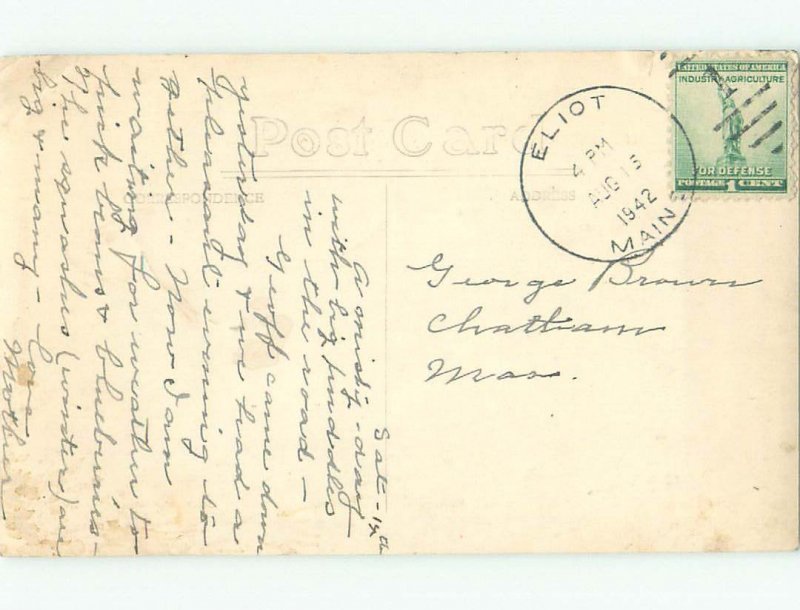 Post Card
CORRESPONDENCE
ADDRESS
ELIOT
4 PM
AUG 15
1942
MAINE
UNITED STATES OF AMERICA
INDUSTRY AGRICULTURE
FOR DEFENSE
POSTAGE 1 CENT
George Brown
Chatham
Mass.
Sat -
A misty day
with big puddles
in the road -
Geoff came down
yesterday & we had a
pleasant evening to-
gether - Now I am
waiting for weather to
pick beans & blueberries -
The squashes (winter) are
big & many - Love
Mother